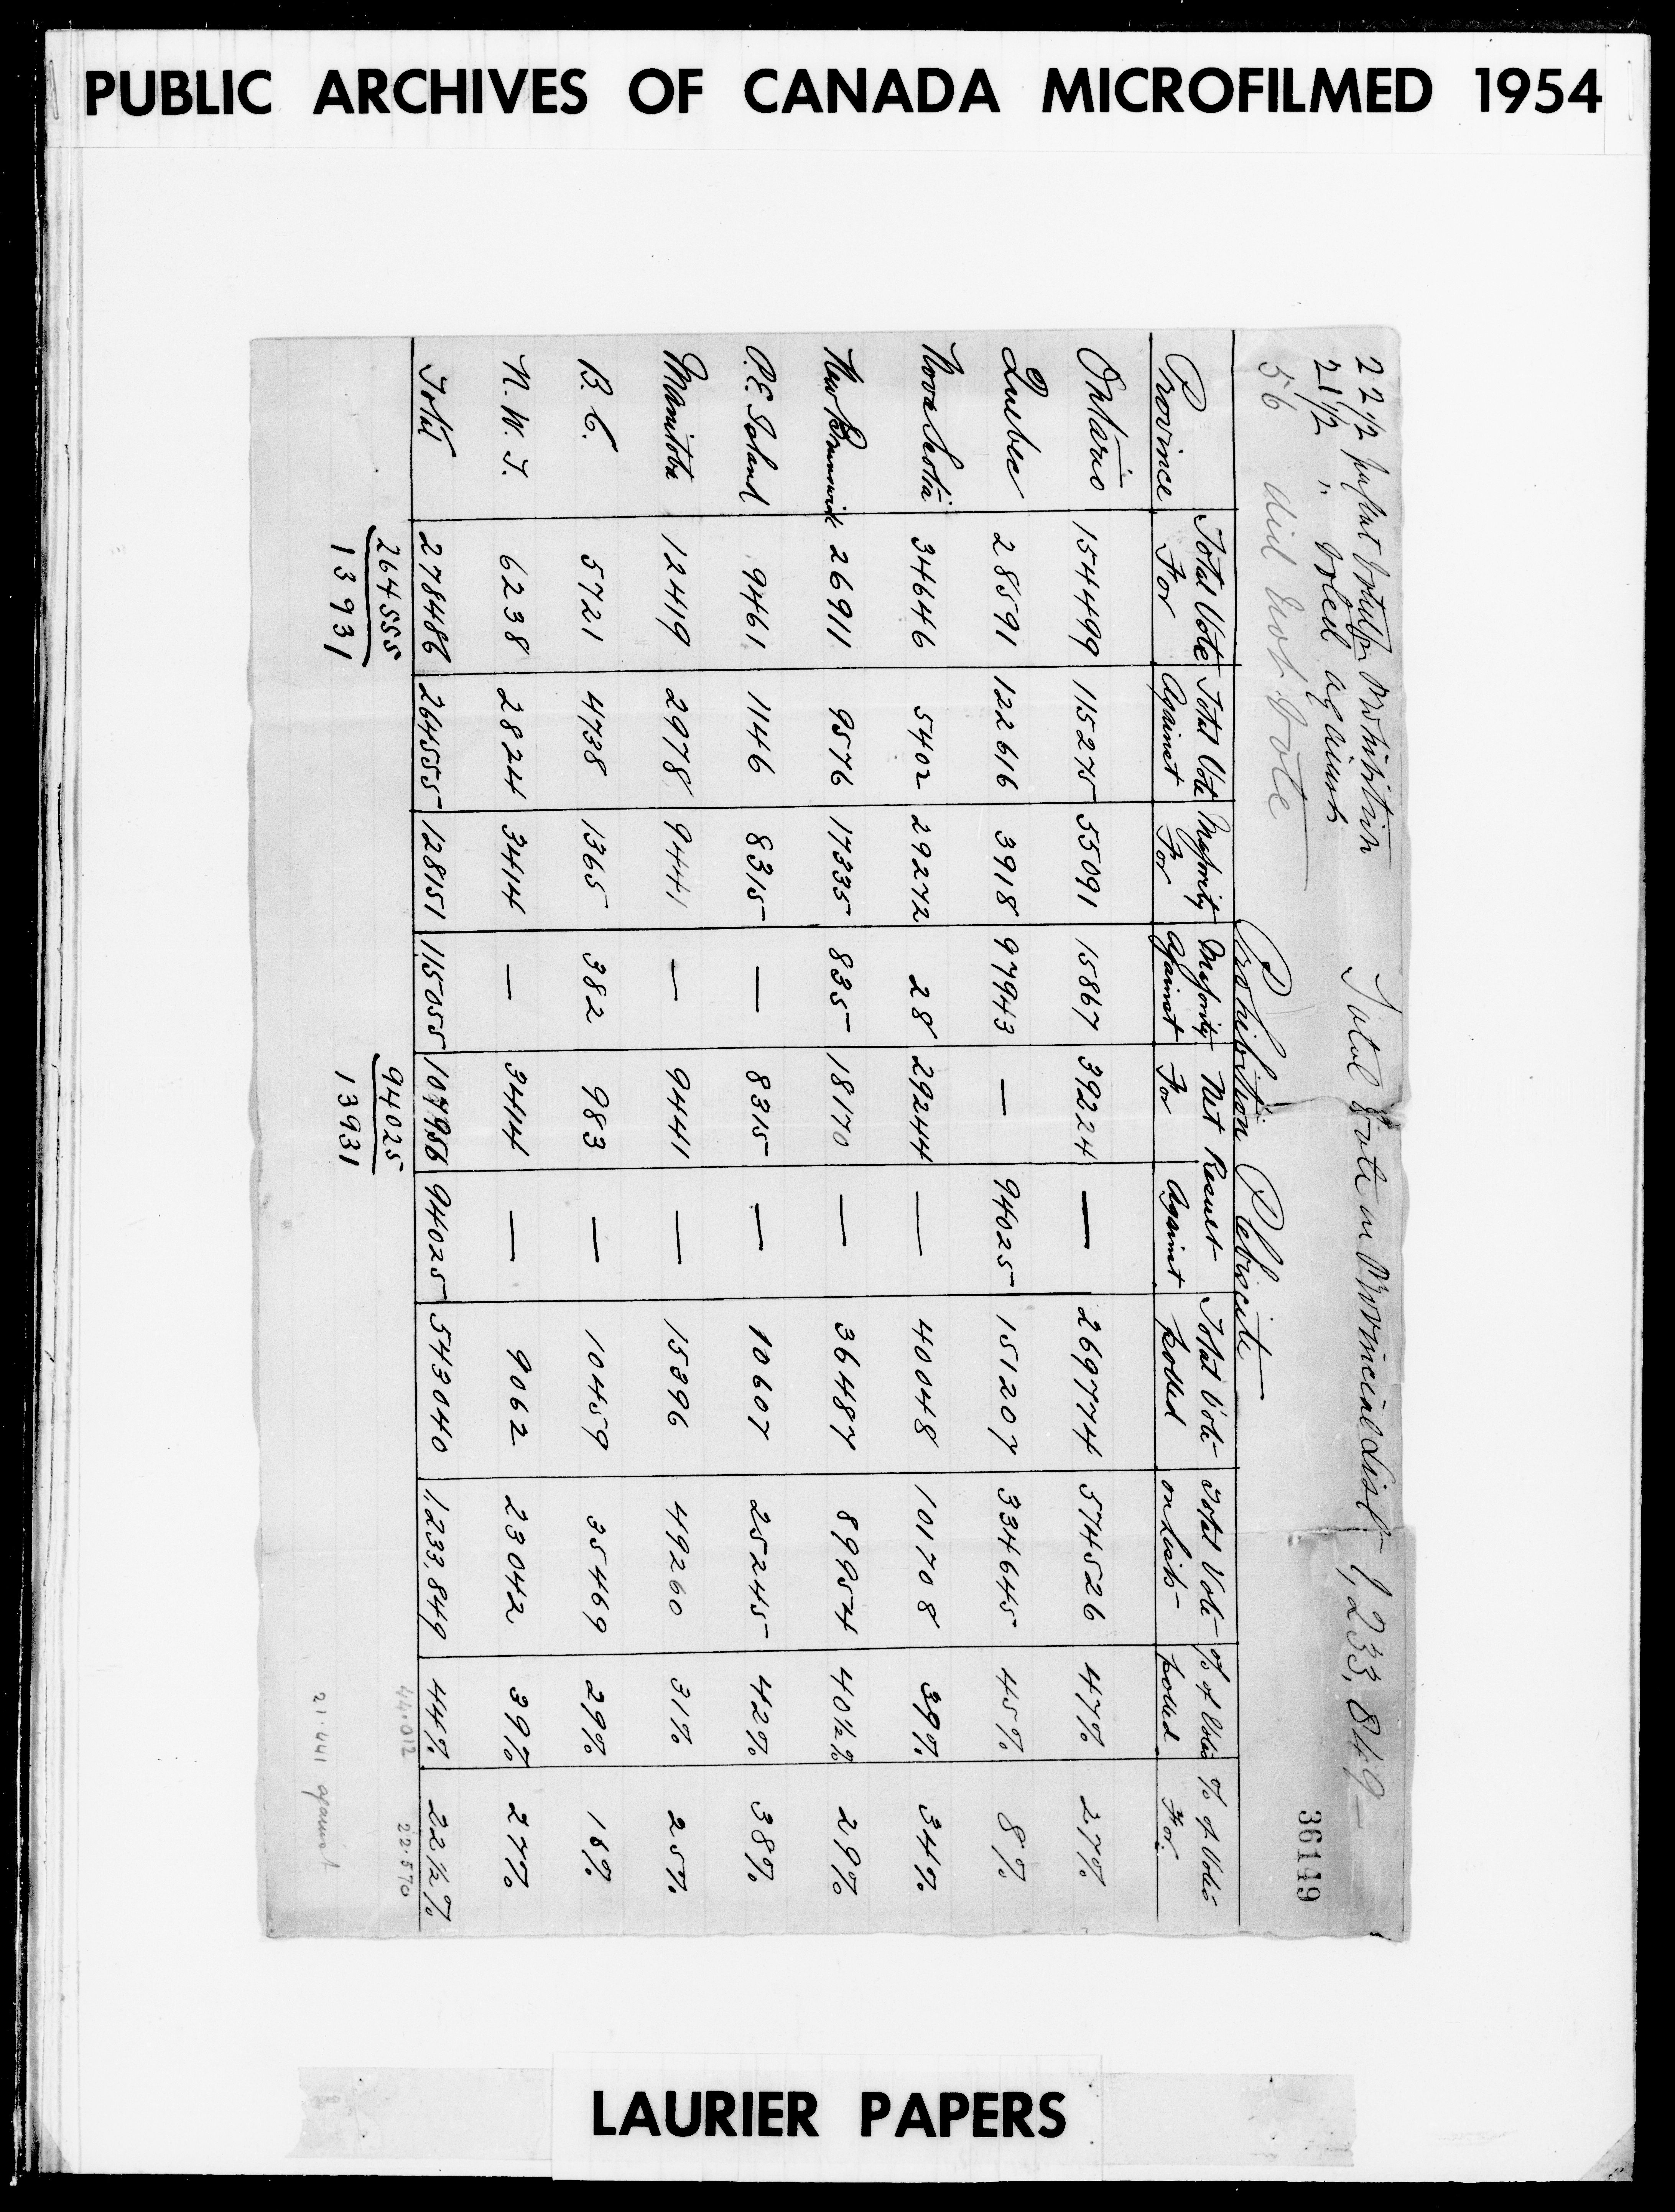 PUBLIC ARCHIVES OF CANADA MICROFILMED 1954
22 1/2 per cent voted for Prohibition
21 1/2 " voted against
56 did not vote
Total Vote on Provincial Lists 1,233,849 -
36149
Prohibition Plebiscite
Province | Total Vote For | Total Vote Against | Majority For | Majority Against | Net Result For | Against | Total Vote polled | Total Vote on Lists | % of Votes polled | % of Votes For.
Ontario 154499 115275 55091 15867 39224 — 269774 574526 47% 27%
Quebec 28591 122616 3918 97943 — 94025 151207 334645 45% 8%
Nova Scotia 34646 5402 29272 28 29244 — 40048 101708 39% 34%
New Brunswick 26911 9576 17335 835 18170 — 36487 89954 40 1/2% 29%
P.E. Island 9461 1146 8315 — 8315 — 10607 25245 42% 38%
Manitoba 12419 2978 9441 — 9441 — 15396 49260 31% 25%
B. C. 5721 4738 1365 382 983 — 10459 35469 29% 16%
N. W. T. 6238 2824 3414 — 3414 — 9062 23042 39% 27%
Total 278486 264555 128151 115055 107956 94025 543040 1,233,849 44% 22 1/2%
264555 94025 44.012 22.570
13931 13931 21.441 against
LAURIER PAPERS